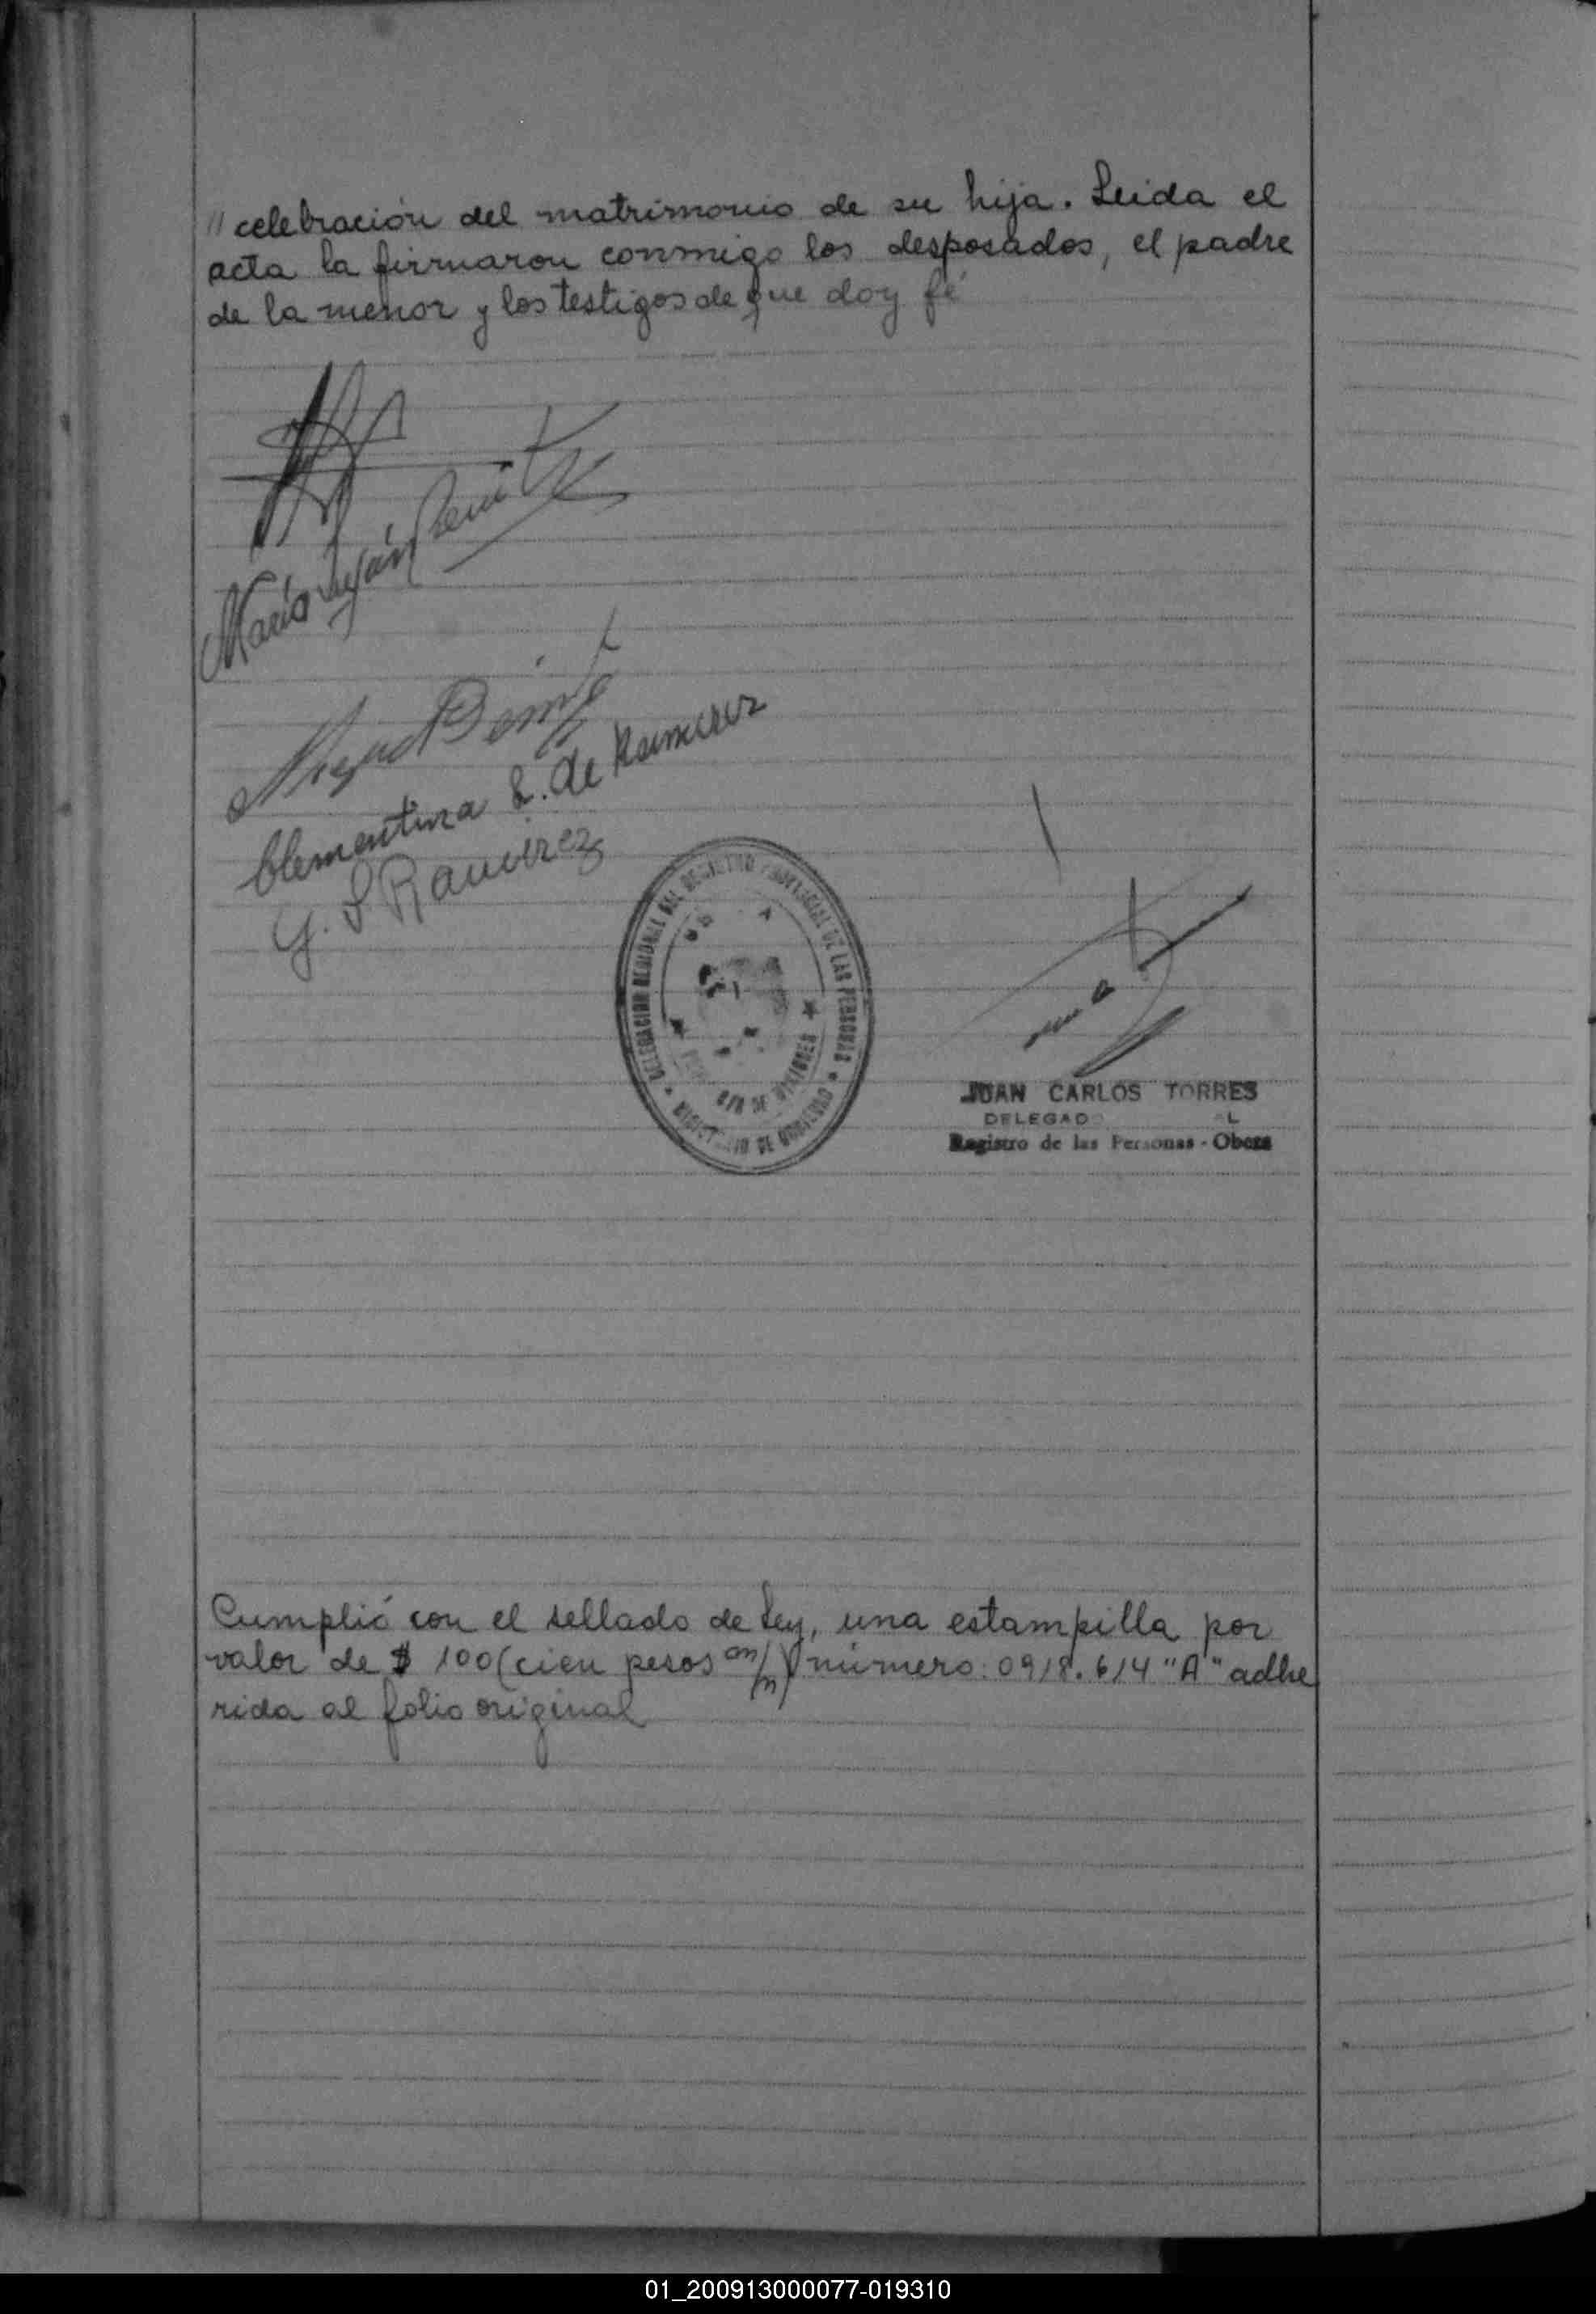 // celebración del matrimonio de su hija. Leida el
acta la firmaron conmigo los desposados, el padre
de la menor y los testigos de que doy fé
María Luján Benitz
Miguel Benitz
Clementina L. de Ramirez
G. S Ramirez
DELEGACION REGIONAL DEL REGISTRO PROVINCIAL DE LAS PERSONAS
DE MISIONES
DE GOBIERNO
JUAN CARLOS TORRES
DELEGADO
Registro de las Personas - Obera
Cumplió con el sellado de Ley, una estampilla por
valor de $ 100 (cien pesos m/n) número: 0918.614 "A" adhe
rida al folio original
01_200913000077-019310